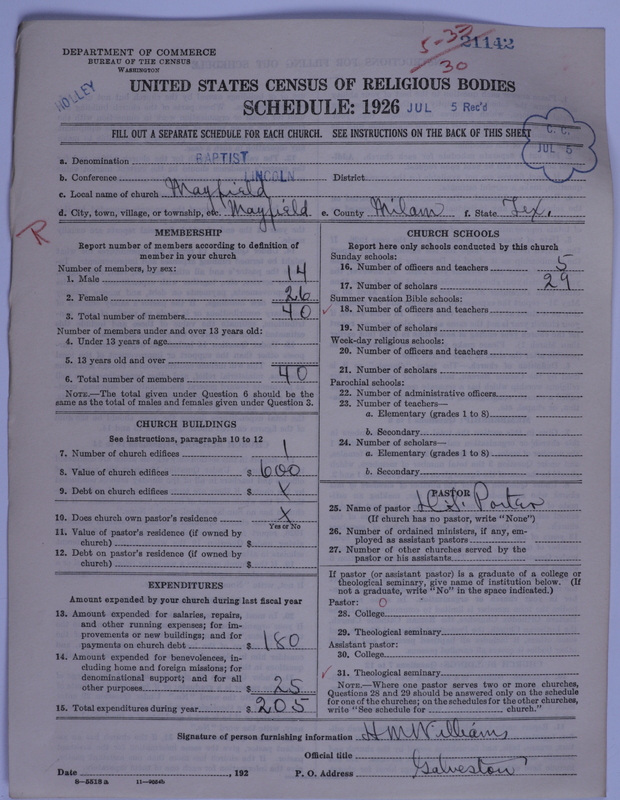 5-33 21142
30
DEPARTMENT OF COMMERCE
BUREAU OF THE CENSUS
WASHINGTON
UNITED STATES CENSUS OF RELIGIOUS BODIES
HOLLEY
SCHEDULE: 1926 JUL 5 Rec'd
FILL OUT A SEPARATE SCHEDULE FOR EACH CHURCH. SEE INSTRUCTIONS ON THE BACK OF THIS SHEET
C. C.
JUL 6
a. Denomination BAPTIST
b. Conference LINCOLN District
c. Local name of church Mayfield
d. City, town, village, or township, etc. Mayfield e. County Milam f. State Tex.
R
MEMBERSHIP
Report number of members according to definition of
member in your church
Number of members, by sex:
1. Male 14
2. Female 26
3. Total number of members 40
Number of members under and over 13 years old:
4. Under 13 years of age
5. 13 years old and over
6. Total number of members 40
NOTE.—The total given under Question 6 should be the
same as the total of males and females given under Question 3.
CHURCH BUILDINGS
See instructions, paragraphs 10 to 12
7. Number of church edifices 1
8. Value of church edifices $ 600
9. Debt on church edifices $ X
10. Does church own pastor's residence X
Yes or No
11. Value of pastor's residence (if owned by
church) $
12. Debt on pastor's residence (if owned by
church) $
EXPENDITURES
Amount expended by your church during last fiscal year
13. Amount expended for salaries, repairs,
and other running expenses; for im-
provements or new buildings; and for
payments on church debt $ 180
14. Amount expended for benevolences, in-
cluding home and foreign missions; for
denominational support; and for all
other purposes $ 25
15. Total expenditures during year $ 205
CHURCH SCHOOLS
Report here only schools conducted by this church
Sunday schools:
16. Number of officers and teachers 5
17. Number of scholars 29
Summer vacation Bible schools:
18. Number of officers and teachers
19. Number of scholars
Week-day religious schools:
20. Number of officers and teachers
21. Number of scholars
Parochial schools:
22. Number of administrative officers
23. Number of teachers—
a. Elementary (grades 1 to 8)
b. Secondary
24. Number of scholars—
a. Elementary (grades 1 to 8)
b. Secondary
PASTOR
25. Name of pastor H.S. Porter
(If church has no pastor, write "None")
26. Number of ordained ministers, if any, em-
ployed as assistant pastors
27. Number of other churches served by the
pastor or his assistants
If pastor (or assistant pastor) is a graduate of a college or
theological seminary, give name of institution below. (If
not a graduate, write "No" in the space indicated.)
Pastor: 0
28. College
29. Theological seminary
Assistant pastor:
30. College
31. Theological seminary
NOTE.—Where one pastor serves two or more churches,
Questions 28 and 29 should be answered only on the schedule
for one of the churches; on the schedules for the other churches,
write "See schedule for church."
Signature of person furnishing information H M Williams
Official title
Date , 192 P. O. Address Galveston
8—5518 a 11—9054b